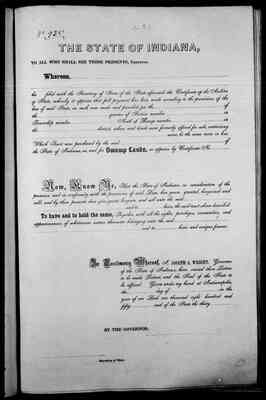 THE STATE OF INDIANA,
TO ALL WHO SHALL SEE THESE PRESENTS, GREETING:
Whereas,
he filed with the Secretary of State of the State aforesaid the Certificate of the Auditor
of State, whereby it appears that full payment has been made according to the provisions of the
law of said State, in such case made and provided for the of
the quarter of Section number in
Township number of Range number in
the district where said lands were formerly offered for sale, containing
acres be the same more or less
Which Tract was purchased by the said of
the State of Indiana, as and for Swamp Lands, as appears by Certificate No.
Now, Know Ye, That the State of Indiana in consideration of the
premises and in conformity with the provisions of said Law, has given, granted, bargained and
sold, and by these presents does give, grant, bargain, and sell unto the said
and to heirs, the said tract above described
To have and to hold the same, Together with all the rights, privileges, immunities, and
appurtenances of whatsoever nature thereunto belonging unto the said
and to heirs and assigns forever.
In Testimony Whereof, I, JOSEPH A. WRIGHT, Governor
of the State of Indiana, have caused these Letters
to be made Patent, and the Seal of the State to
be affixed. Given under my hand at Indianapolis,
the day of in the
year of our Lord one thousand eight hundred and
fifty and of the State the thirty
BY THE GOVERNOR:
Secretary of State.